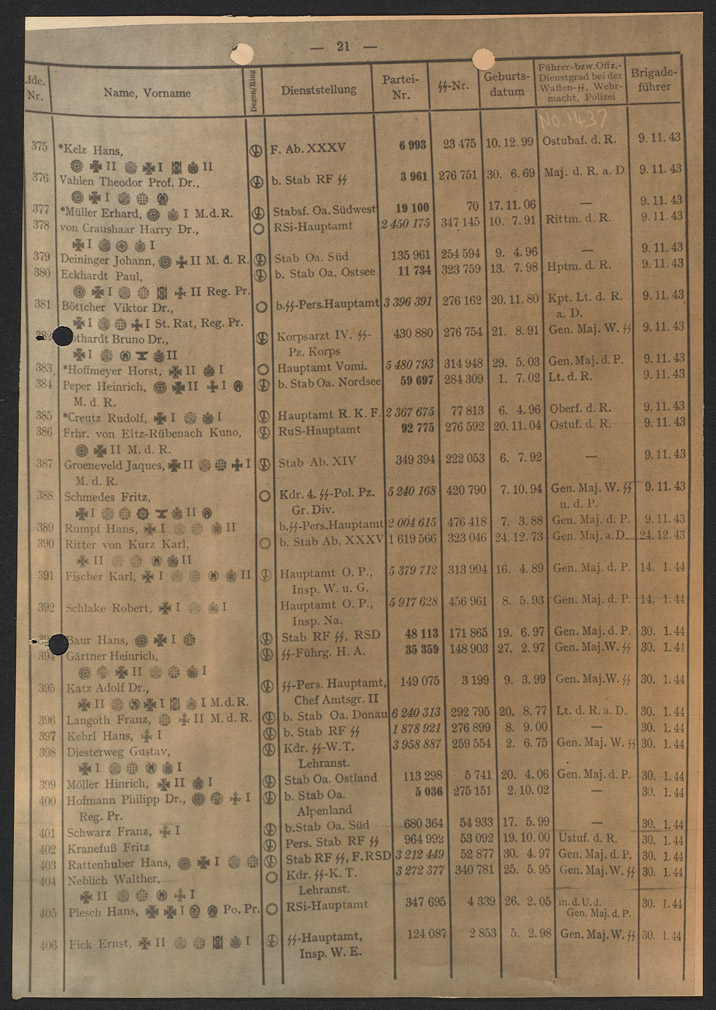 — 21 —
Lfde. Nr. Name, Vorname Degen/Ring Dienststellung Partei-Nr. ᛋᛋ-Nr. Geburts-datum Führer- bzw. Offz.-Dienstgrad bei der Waffen-ᛋᛋ, Wehr-macht, Polizei Brigade-führer
NO.1437
375 *Kelz Hans, F. Ab. XXXV 6 993 23 475 10. 12. 99 Ostubaf. d. R. 9. 11. 43
II I II
376 Vahlen Theodor Prof. Dr., b. Stab RF ᛋᛋ 3 961 276 751 30. 6. 69 Maj. d. R. a. D. 9. 11. 43
I
377 *Müller Erhard, I M. d. R. Stabsf. Oa. Südwest 19 100 70 17. 11. 06 — 9. 11. 43
378 von Craushaar Harry Dr., RSi-Hauptamt 2 450 175 347 145 10. 7. 91 Rittm. d. R. 9. 11. 43
I I
379 Deininger Johann, II M. d. R. Stab Oa. Süd 135 961 254 594 9. 4. 96 — 9. 11. 43
380 Eckhardt Paul, b. Stab Oa. Ostsee 11 734 323 759 13. 7. 98 Hptm. d. R. 9. 11. 43
I II Reg. Pr.
381 Böttcher Viktor Dr., b.ᛋᛋ-Pers.Hauptamt 3 396 391 276 162 20. 11. 80 Kpt. Lt. d. R. 9. 11. 43
I I St. Rat, Reg. Pr. a. D.
othardt Bruno Dr., Korpsarzt IV. ᛋᛋ- 430 880 276 754 21. 8. 91 Gen. Maj. W. ᛋᛋ 9. 11. 43
I II Pz. Korps
383 *Hoffmeyer Horst, II I Hauptamt Vomi. 5 480 793 314 948 29. 5. 03 Gen. Maj. d. P. 9. 11. 43
384 Peper Heinrich, II I b. Stab Oa. Nordsee 59 697 284 309 1. 7. 02 Lt. d. R. 9. 11. 43
M. d. R.
385 *Creutz Rudolf, I I Hauptamt R. K. F. 2 367 675 77 813 6. 4. 96 Oberf. d. R. 9. 11. 43
386 Frhr. von Eltz-Rübenach Kuno, RuS-Hauptamt 92 775 276 592 20. 11. 04 Ostuf. d. R. 9. 11. 43
II M. d. R.
387 Groeneveld Jaques, II I Stab Ab. XIV 349 394 222 053 6. 7. 92 — 9. 11. 43
M. d. R.
388 Schmedes Fritz, Kdr. 4. ᛋᛋ-Pol. Pz. 5 240 168 420 790 7. 10. 94 Gen. Maj. W. ᛋᛋ 9. 11. 43
I II Gr. Div. u. d. P.
389 Rumpf Hans, I II b.ᛋᛋ-Pers.Hauptamt 2 004 615 476 418 7. 3. 88 Gen. Maj. d. P. 9. 11. 43
390 Ritter von Kurz Karl, b. Stab Ab. XXXV 1 619 566 323 046 24. 12. 73 Gen. Maj. a. D. 24. 12. 43
II II
391 Fischer Karl, I II Hauptamt O. P., 5 379 712 313 994 16. 4. 89 Gen. Maj. d. P. 14. 1. 44
Insp. W. u. G.
392 Schlake Robert, I I Hauptamt O. P., 5 917 628 456 961 8. 5. 93 Gen. Maj. d. P. 14. 1. 44
Insp. Na.
Baur Hans, I Stab RF ᛋᛋ, RSD 48 113 171 865 19. 6. 97 Gen. Maj. d. P. 30. 1. 44
394 Gärtner Heinrich, ᛋᛋ-Führg. H. A. 35 359 148 903 27. 2. 97 Gen. Maj. W. ᛋᛋ 30. 1. 44
II I
395 Katz Adolf Dr., ᛋᛋ-Pers. Hauptamt, 149 075 3 199 9. 3. 99 Gen. Maj. W. ᛋᛋ 30. 1. 44
II I I M. d. R. Chef Amtsgr. II
396 Langoth Franz, II M. d. R. b. Stab Oa. Donau 6 240 313 292 795 20. 8. 77 Lt. d. R. a. D. 30. 1. 44
397 Kehrl Hans, I b. Stab RF ᛋᛋ 1 878 921 276 899 8. 9. 00 — 30. 1. 44
398 Diesterweg Gustav, Kdr. ᛋᛋ-W. T. 3 958 887 259 554 2. 6. 75 Gen. Maj. W. ᛋᛋ 30. 1. 44
I I Lehranst.
399 Möller Hinrich, II I Stab Oa. Ostland 113 298 5 741 20. 4. 06 Gen. Maj. d. P. 30. 1. 44
400 Hofmann Philipp Dr., I b. Stab Oa. 5 036 275 151 2. 10. 02 — 30. 1. 44
Reg. Pr. Alpenland
401 Schwarz Franz, I b. Stab Oa. Süd 680 364 54 933 17. 5. 99 — 30. 1. 44
402 Kranefuß Fritz Pers. Stab RF ᛋᛋ 964 992 53 092 19. 10. 00 Ustuf. d. R. 30. 1. 44
403 Rattenhuber Hans, I Stab RF ᛋᛋ, F. RSD 3 212 449 52 877 30. 4. 97 Gen. Maj. d. P. 30. 1. 44
404 Neblich Walther, Kdr. ᛋᛋ-K. T. 3 272 377 340 781 25. 5. 95 Gen. Maj. W. ᛋᛋ 30. 1. 44
II I Lehranst.
405 Plesch Hans, I Po. Pr. RSi-Hauptamt 347 695 4 339 26. 2. 05 m. d. U. d. 30. 1. 44
Gen. Maj. d. P.
406 Fick Ernst, II I ᛋᛋ-Hauptamt, 124 087 2 853 5. 2. 98 Gen. Maj. W. ᛋᛋ 30. 1. 44
Insp. W. E.